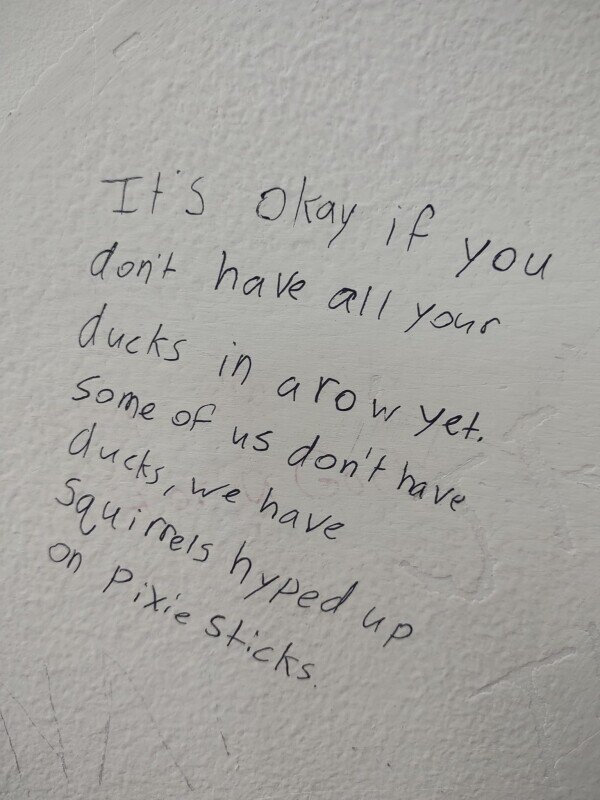 It's okay if you
don't have all your
ducks in a row yet.
Some of us don't have
ducks, we have
Squirrels hyped up
on Pixie sticks.